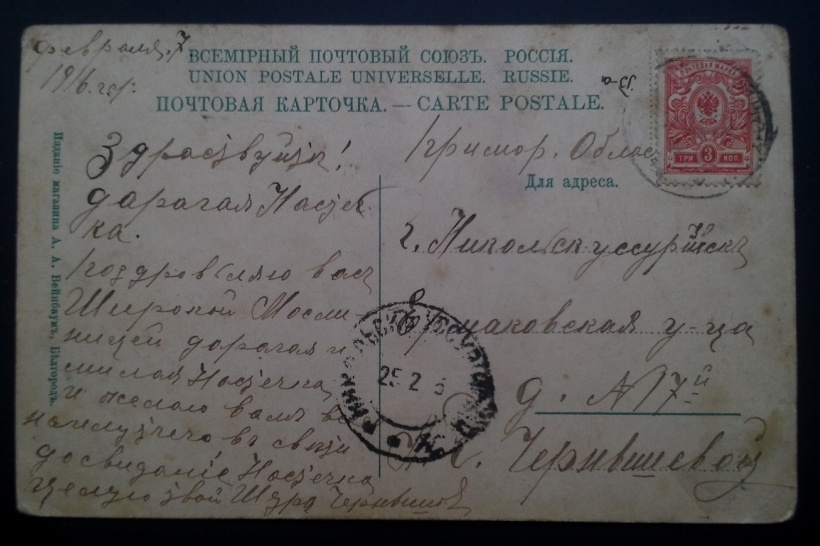 Февраля, 7
1916. го:
ВСЕМІРНЫЙ ПОЧТОВЫЙ СОЮЗЪ. РОССІЯ.
UNION POSTALE UNIVERSELLE. RUSSIE.
ПОЧТОВАЯ КАРТОЧКА. — CARTE POSTALE.
ТРИ 3 КОП.
Изданіе магазина А. А. Вейнбаумъ, Бѣлгородъ.
Здраствуйте!
дарагая Насте
ка.
Поздровляю вас
Широкой Масли
ницей дарагая и
милая Настечка
и желаю вамъ
наилутчего въ
досвиданіе Настечка
целую твой Шура Чернышов
Примор. Облас
Для адреса.
г. Никольскуссурійскъ
ская у-ца
д. N 17й
Чернышевой
25 2 6